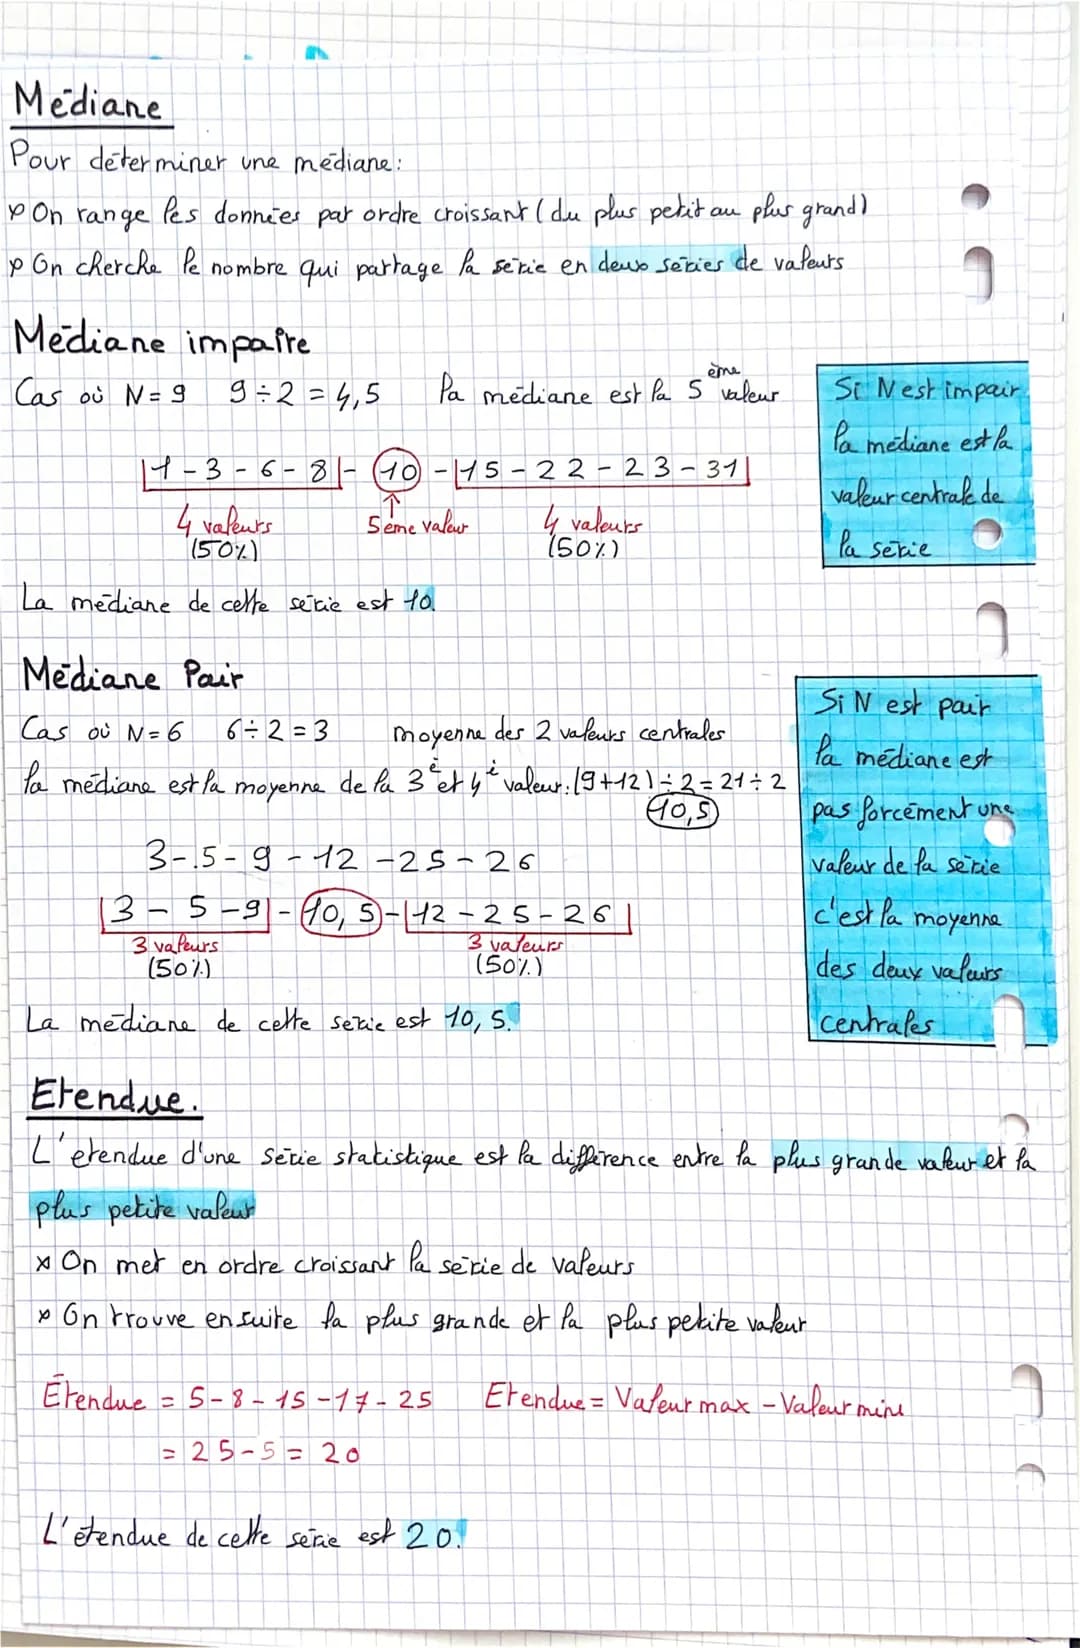 Médiane
Pour déterminer une médiane:
On range les données par ordre croissant (du plus petit au plus grand)
On cherche le nombre qui partage la série en deux séries de valeurs
Médiane impaire
Cas où N=9 9÷2=4,5 la médiane est la 5ème valeur
1-3-6-8-10-15-22-23-31
4 valeurs 5ème valeur 4 valeurs
(50%) (50%)
La médiane de cette série est 10.
Si N est impair
la médiane est la
valeur centrale de
la série
Médiane Pair
Cas où N=6 6÷2=3 moyenne des 2 valeurs centrales
la médiane est la moyenne de la 3è et 4è valeur: (9+12)÷2=21÷2
10,5
3-5-9-12-25-26
3-5-9-10,5-12-25-26
3 valeurs 3 valeurs
(50%) (50%)
La médiane de cette série est 10,5.
Si N est pair
la médiane est
pas forcément une
valeur de la série
c'est la moyenne
des deux valeurs
centrales
Etendue.
L'étendue d'une série statistique est la différence entre la plus grande valeur et la
plus petite valeur
x On met en ordre croissant la série de valeurs
x On trouve ensuite la plus grande et la plus petite valeur
Étendue = 5-8-15-17-25 Etendue = Valeur max - Valeur mini
= 25-5 = 20
L'étendue de cette série est 20.